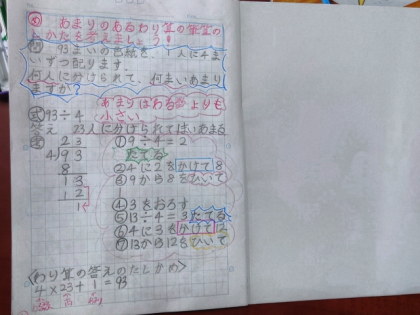 め あまりのあるわり算の筆算の
しかたを考えましょう!
問 93まいの色紙を、1人に4ま
いずつ配ります。
何人に分けられて、何まいあまり
ますか?
あまりはわる数よりも
小さい
式 93÷4
答え 23人に分けられて1まいあまる
筆
23
4)93
8
13
12
1
①9÷4=2
たてる
②4に2をかけて8
③9から8をひいて
1
④3をおろす
⑤13÷4=3たてる
⑥4に3をかけて12
⑦13から12をひいて
<わり算の答えのたしかめ>
4×23+1=93